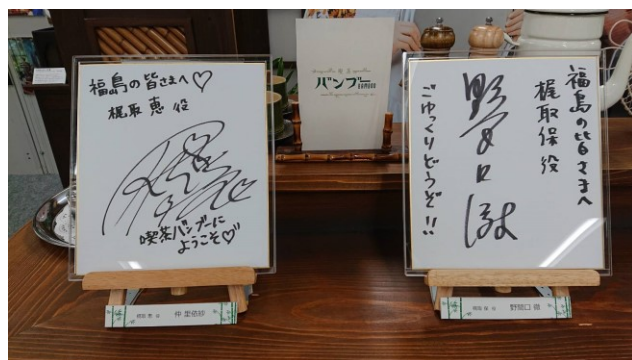 福島の皆さまへ♡
梶取 恵 役
喫茶バンブーに
ようこそ♡
仲 里依紗
バンブー
福島の皆さまへ
梶取保役
野間口徹
ごゆっくりどうぞ!!
野間口 徹